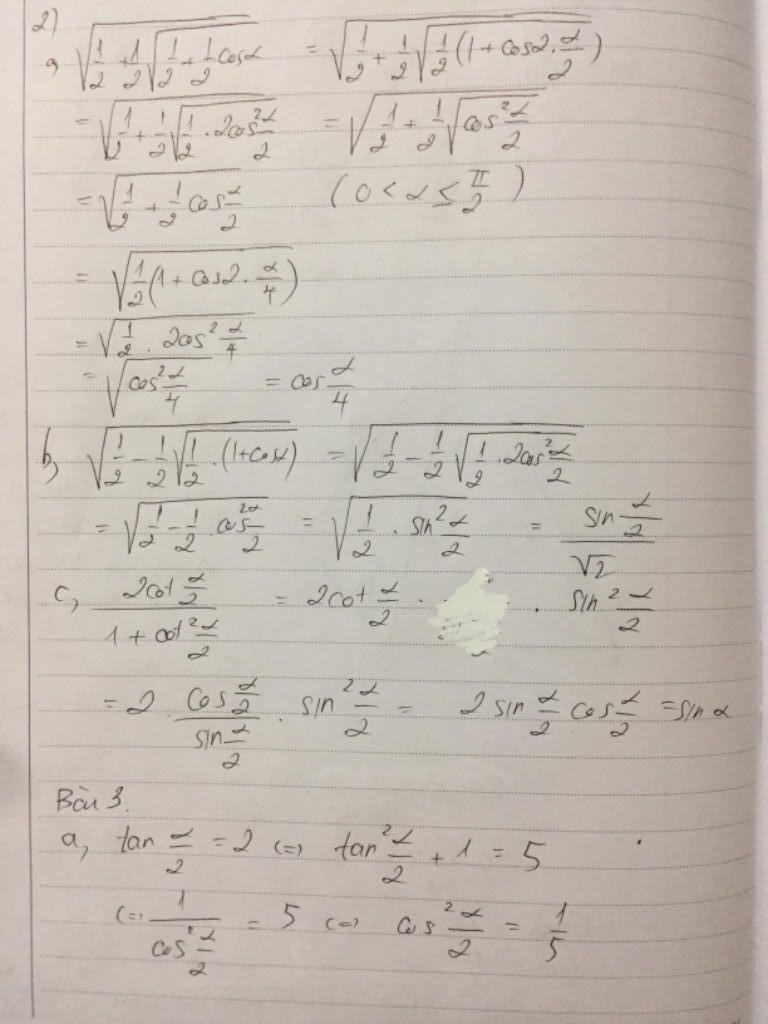 2)
a, √(1/2 + 1/2 √(1/2 + 1/2 cosα)) = √(1/2 + 1/2 √(1/2 (1 + cos2.α/2)))
= √(1/2 + 1/2 √(1/2 . 2cos²α/2)) = √(1/2 + 1/2 √(cos²α/2))
= √(1/2 + 1/2 cosα/2) (0 < α ≤ π/2)
= √(1/2 (1 + cos2 . α/4))
= √(1/2 . 2cos² α/4)
= √(cos²α/4) = cos α/4
b, √(1/2 - 1/2 √(1/2 . (1+cosα))) = √(1/2 - 1/2 √(1/2 . 2cos²α/2))
= √(1/2 - 1/2 . cos²α/2) = √(1/2 . sin²α/2) = (sin α/2)/√2
c, (2cot α/2)/(1 + cot²α/2) = 2cot α/2 . . sin² α/2
= 2 . (cos α/2)/(sin α/2) . sin² α/2 = 2 sin α/2 cos α/2 = sin α
Bài 3.
a, tan α/2 = 2 (=) tan²α/2 + 1 = 5
(=) 1/(cos²α/2) = 5 (=) cos²α/2 = 1/5